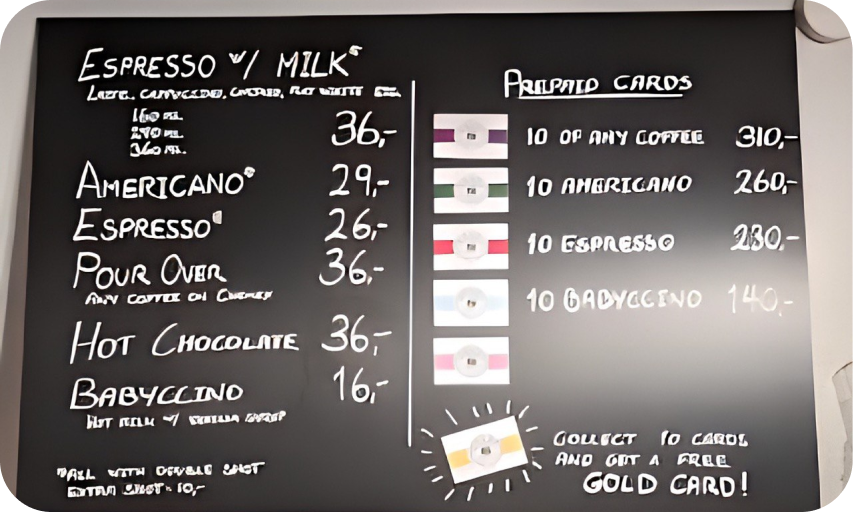 ESPRESSO W/ MILK*
LATTE, CAPPUCCINO, CORTADO, FLAT WHITE
160 ML.
ML.
360 ML.
36,-
AMERICANO* 29,-
ESPRESSO* 26,-
POUR OVER 36,-
ANY COFFEE ON
HOT CHOCOLATE 36,-
BABYCCINO 16,-
HOT MILK W/ VANILLA SYRUP
*ALL WITH DOUBLE SHOT
EXTRA SHOT 10,-
PREPAID CARDS
10 OF ANY COFFEE 310,-
10 AMERICANO 260,-
10 ESPRESSO 230,-
10 BABYCCINO 140,-
COLLECT 10 CARDS
AND GET A FREE
GOLD CARD!